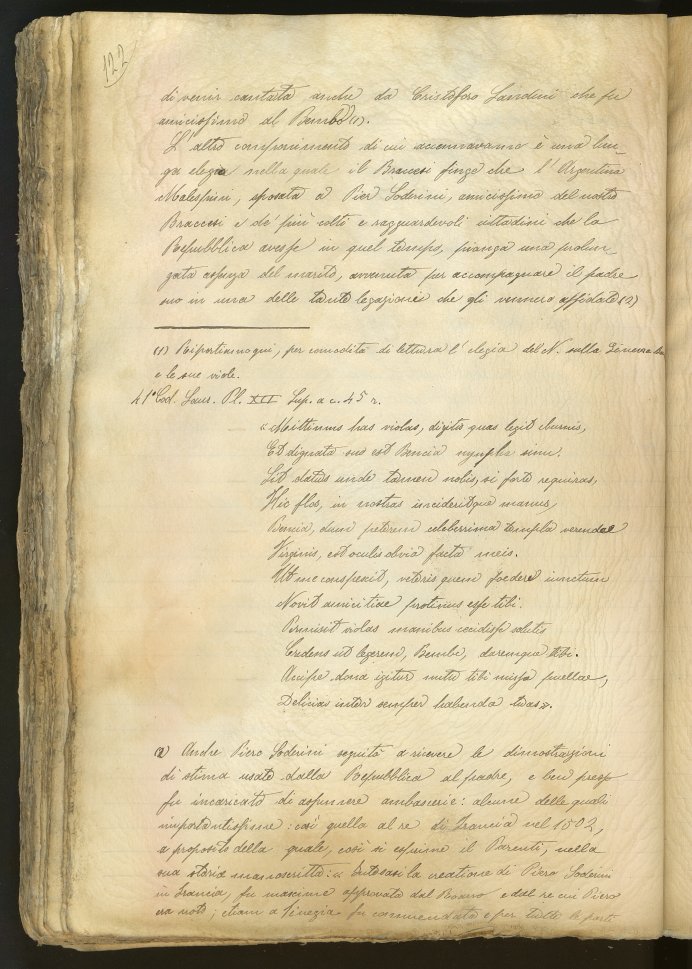 122
di venir cantata anche da Cristoforo Landini che fu
amicissimo del Bembo (1).
L'altro componimento di cui accennavamo è una lun-
ga elegia nella quale il Braccesi finge che l'Argentina
Malespini, sposata a Pier Soderini, amicissimo del nostro
Braccesi e de' più colti e ragguardevoli cittadini che la
Repubblica avesse in quel tempo, pianga una prolun-
gata assenza del marito, avvenuta per accompagnare il padre
suo in una delle tante legazioni che gli vennero affidate (2)
(1) Riportiamo qui, per comodità di lettura l'elegia del N. sulla Ginevra
e le sue viole.
41° Cod. Laur. Pl. XCI Sup. a c. 45 r.
"Mittimus has violas, digitis quas legit eburnis,
Et dignata suo est Bencia nympha sinu.
Sit datus unde tamen nobis, si forte requiras,
Hic flos, in nostras incideritque manus,
Bencia, dum peterem celeberrima templa verendae
Virginis, est oculis obvia facta meis.
Ut me conspexit, veteris quem foedere iunctum
Novit amicitiae protinus esse tibi.
Permisit violas manibus cecidisse
Credens ut legerem, Bembe, daremque tibi.
Accipe dona igitur missa puellae,
Delicias inter semper habenda tuas".
(2) Anche Piero Soderini seguitò a ricevere le dimostrazioni
di stima usate dalla Repubblica al padre, e ben presso
fu incaricato di assumere ambascerie: alcune delle quali
importantissime: così quella al re di Francia nel 1502,
a proposito della quale, così si esprime il Parenti, nella
sua storia manoscritta: " la creatione di Piero Soderini
in Francia, fu maxime approvata dal Roano e dal re cui Piero
era noto; etiam a Vinezia fu commendata e per tutte le parti